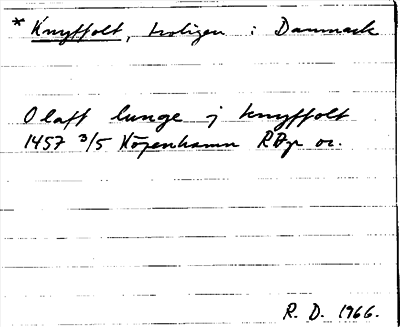 * Knyffolt, troligen i Danmark
Olaff lunge j knyffolt
1457 3/5 Köpenhamn RAp or.
R. D. 1966.